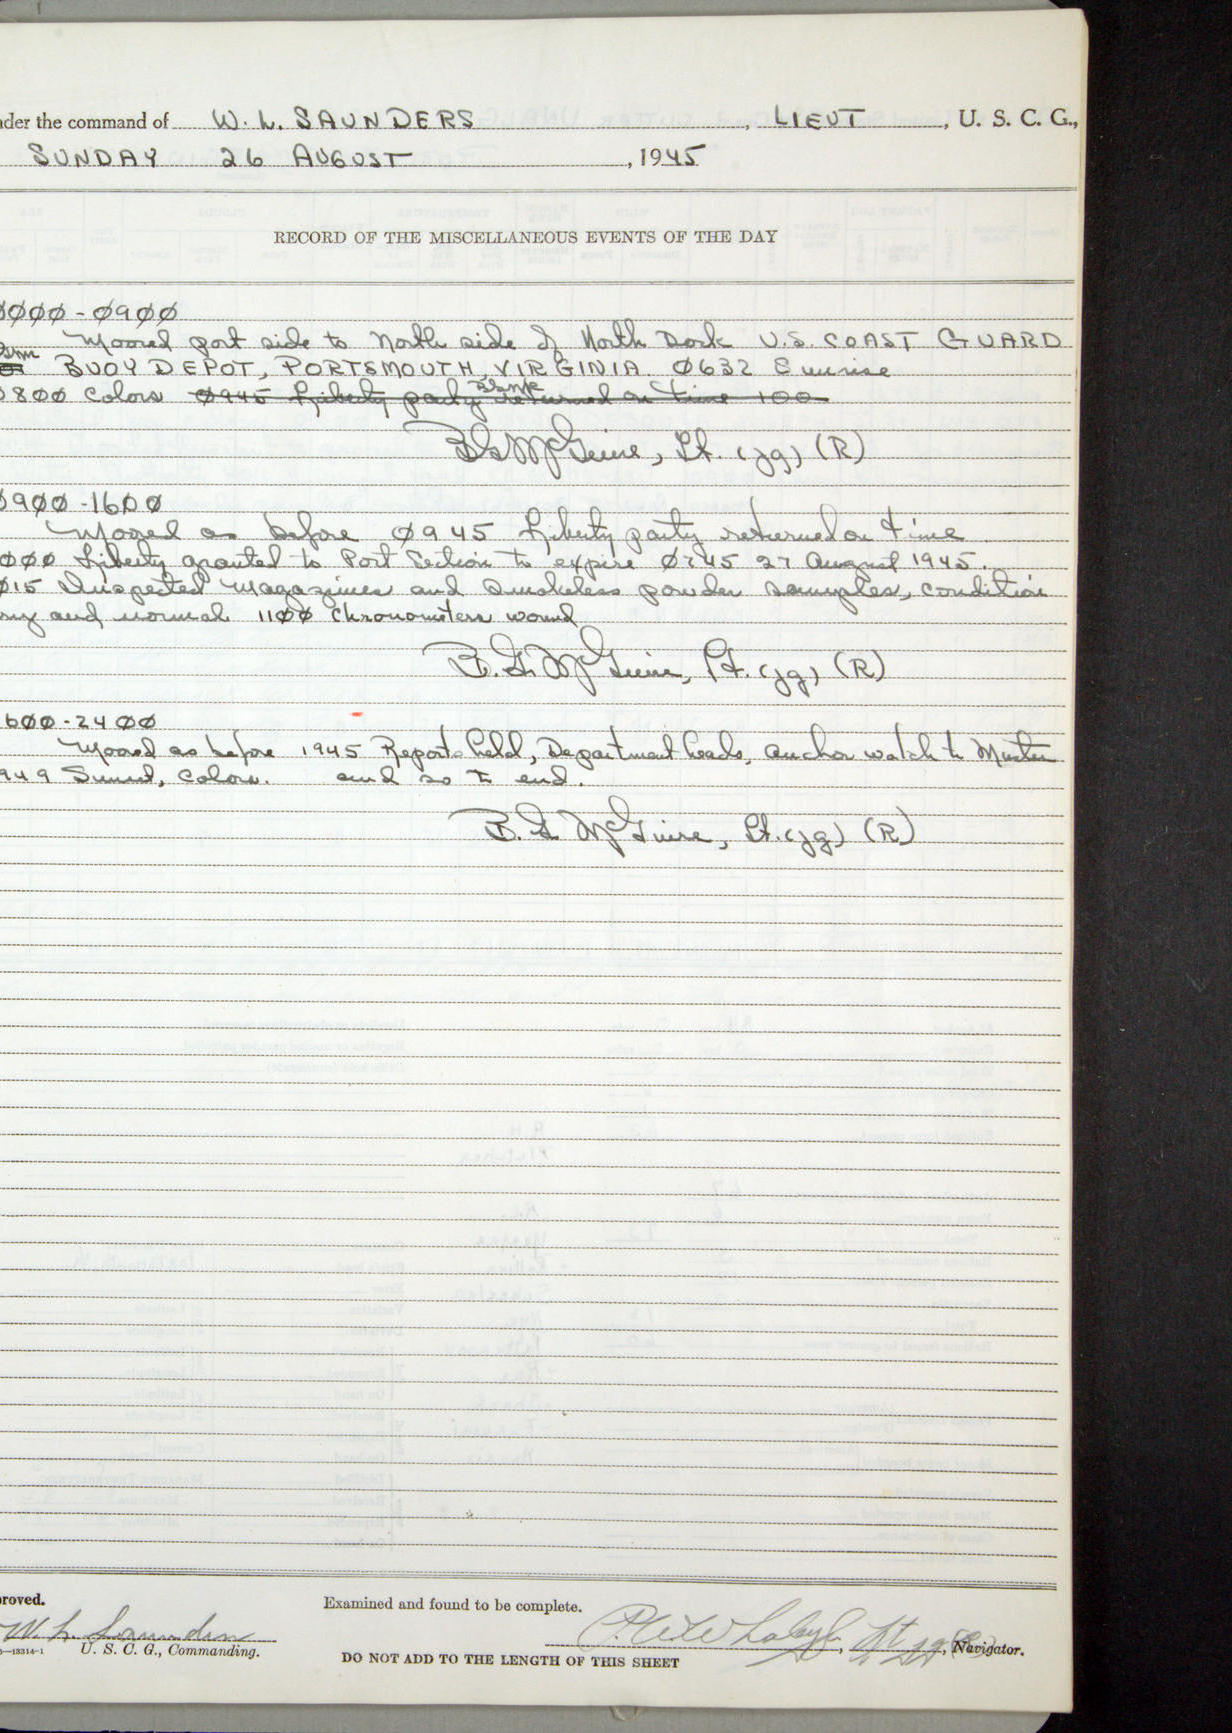 nder the command of W. L. SAUNDERS, LIEUT, U. S. C. G.,
SUNDAY 26 AUGUST, 1945
RECORD OF THE MISCELLANEOUS EVENTS OF THE DAY
0000-0900
Moored port side to North side of North Dock U.S. COAST GUARD
BUOY DEPOT, PORTSMOUTH, VIRGINIA. 0632 Sunrise
0800 Colors 0945 Liberty party returned on time 100
B G McGuire, Lt. (jg) (R)
0900-1600
Moored as before 0945 Liberty party returned on time
000 Liberty granted to Port Section to expire 0745 27 August 1945.
015 Inspected magazines and smokeless powder samples, condition
ry and normal. 1100 Chronometers wound
B. G. McGuire, Lt. (jg) (R)
600-2400
Moored as before 1945 Reports held, Department heads, anchor watch to Muster
949 Sunset, Colors. and so to end.
B. G. McGuire, Lt. (jg) (R)
proved.
Examined and found to be complete.
W. L. Saunders
U. S. C. G., Commanding.
Lt jg, Navigator.
—13314-1
DO NOT ADD TO THE LENGTH OF THIS SHEET